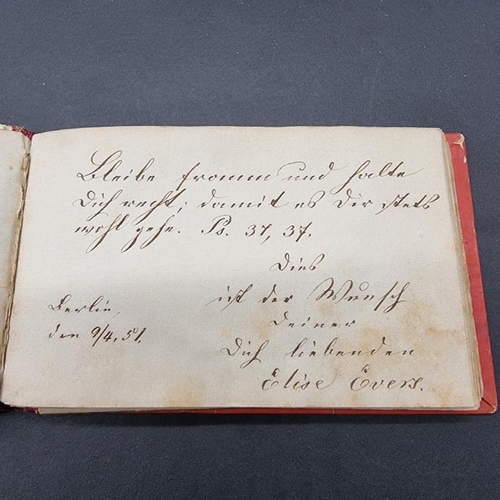 Bleibe fromm und halte
Dich recht; damit es Dir stets
wohl gehe. Ps. 37, 37.
Dies
ist der Wunsch
Deiner
Dich liebenden
Elise Evers.
Berlin,
den 9/4, 51.